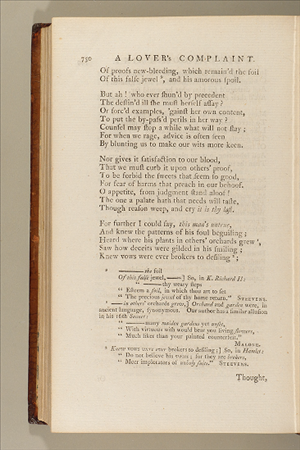 730 A LOVER's COMPLAINT.
Of proofs new-bleeding, which remain'd the foil
Of this false jewel, and his amorous spoil.
But ah! who ever shun'd by precedent
The destin'd ill she must herself assay?
Or forc'd examples, 'gainst her own content,
To put the by-pass'd perils in her way?
Counsel may stop a while what will not stay;
For when we rage, advice is often seen
By blunting us to make our wits more keen.
Nor gives it satisfaction to our blood,
That we must curb it upon others' proof,
To be forbid the sweets that seem so good,
For fear of harms that preach in our behoof.
O appetite, from judgment stand aloof!
The one a palate hath that needs will taste,
Though reason weep, and cry it is thy last.
For further I could say, this man's untrue,
And knew the patterns of his foul beguiling;
Heard where his plants in others' orchards grew,
Saw how deceits were gilded in his smiling;
Knew vows were ever brokers to defiling;
—— the foil
Of this false jewel, ——] So, in K. Richard II:
"—— thy weary steps
"Esteem a foil, in which thou art to set
"The precious jewel of thy home return." STEEVENS.
— in others' orchards grew,] Orchard and garden were, in
ancient language, synonymous. Our author has a similar allusion
in his 16th Sonnet:
"—— many maiden gardens yet unset,
"With virtuous wish would bear you living flowers,
"Much liker than your painted counterfeit."
MALONE.
Knew vows were ever brokers to defiling;] So, in Hamlet:
"Do not believe his vows; for they are brokers,
"Mere implorators of unholy suits." STEEVENS.
Thought,